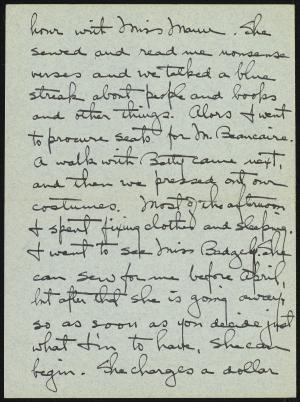 hour with Miss Mauer. She
sewed and read me nonsense
verses and we talked a blue
streak about people and books
and other things. Alors I went
to procure seats for M. Beaucaire.
A walk with Betty came next,
and then we pressed out our
costumes. Most of the afternoon
I spent fixing clothes and sleeping.
I went to see Miss Badgely. She
can sew for me before April,
but after that she is going away,
so as soon as you decide just
what I'm to have, she can
begin. She charges a dollar